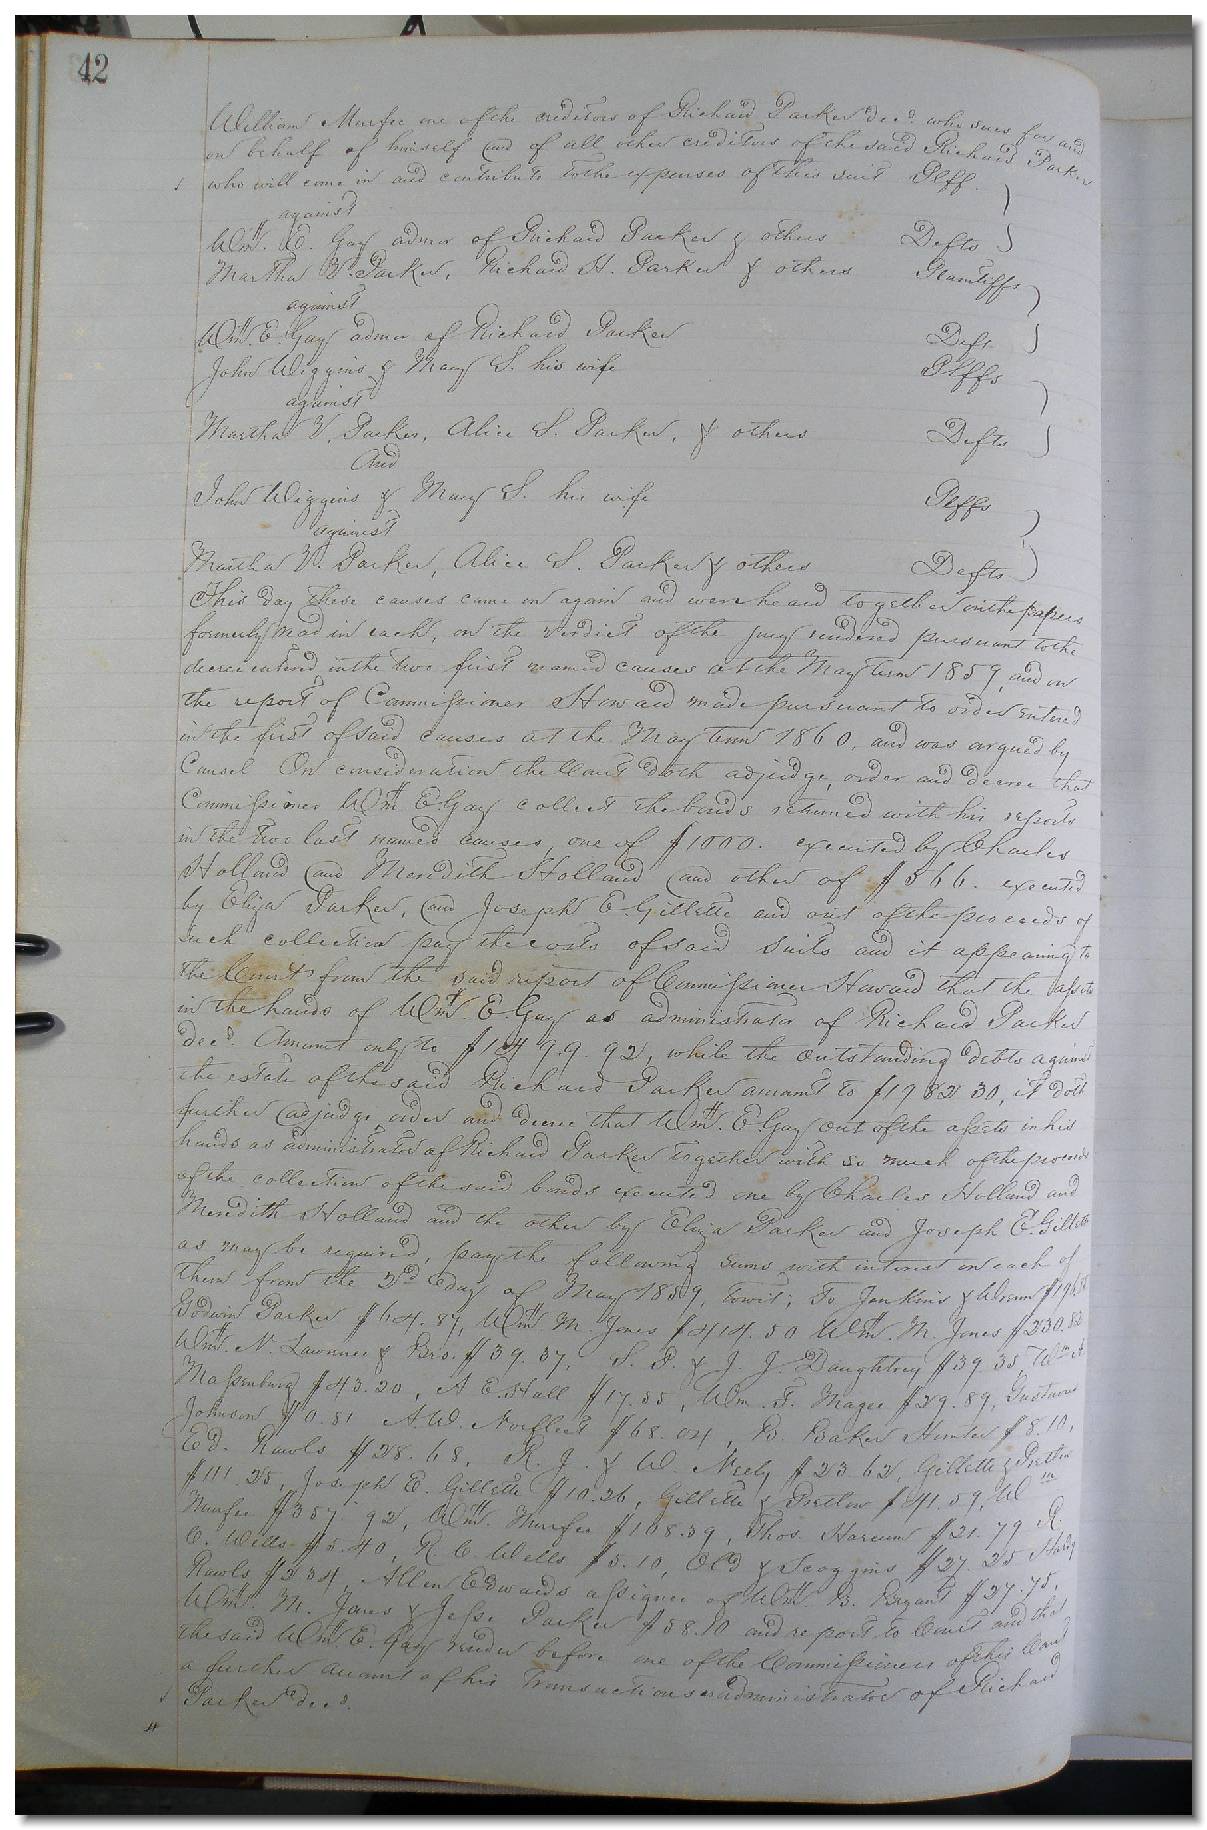 42
William Murfee one of the creditors of Richard Parker decd who sues for and
on behalf of himself and of all other creditors of the said Richard Parker
who will come in and contribute to the expenses of this suit Plff.
against
Wm. E. Gay admor of Richard Parker & others Defts
Martha V. Parker, Richard H. Parker & others Plaintiffs
against
Wm. E. Gay admor of Richard Parker Deft
John Wiggins & Mary S. his wife Plffs
against
Martha V. Parker, Alice S. Parker, & others Defts
And
John Wiggins & Mary S. his wife Plffs
against
Martha V. Parker, Alice S. Parker & others Defts
This day these causes came on again and were heard together on the papers
formerly read in each, on the verdict of the jury rendered pursuant to the
decree entered in the two first named causes at the May term 1859, and on
the report of Commissioner Howard made pursuant to order entered
in the first of said causes at the May term 1860, and was argued by
Counsel On consideration the Court doth adjudge, order and decree that
Commissioner Wm E Gay collect the bonds returned with his reports
in the two last named causes, one of $1000. executed by Charles
Holland and Meredith Holland and other of $566. executed
by Eliza Parker, and Joseph E. Gillette and out of the proceeds of
such collection pay the costs of said suits and it appearing to
the Court from the said report of Commissioner Howard that the assets
in the hands of Wm E. Gay as administrator of Richard Parker
decd. Amount only to $1499.92, while the outstanding debts against
the estate of the said Richard Parker amount to $1982 30, it doth
further adjudge, order and decree that Wm. E. Gay out of the assets in his
hands as administrator of Richard Parker together with so much of the proceeds
of the collection of the said bonds executed one by Charles Holland and
Meredith Holland and the other by Eliza Parker and Joseph E. Gillette
as may be required, pay the following sums with interest on each of
them from the 2nd day of May 1859, towit; To Jenkins &
Godwin Parker $64.87, Wm M. Jones $414.50 Wm. M. Jones $230.82
Wm. N. Lawrence & Bro. $39.37, S. P. & J. J. Daughtrey $39.35 Wm A
Massenburg $43.20, A E. Hall $17.55, Wm. F. Magee $29.89, Gustavus
Johnson $0.81 A. W. Norfleet $68.04, B. Baker Hunter $8.10,
Ed. Rawls $28.68, R. J. & W. Neely $23.62, Gillette & Pretlow
$111.25, Joseph E. Gillette $10.26, Gillette & Pretlow $41.59, Wm
Murfee $357.92, Wm. Murfee $108.39, Thos. Harcum $21.79 R.
C. Wells $5.40, R. C. Wells $5.10, Old & Scoggins $27.25 Hardy
Rawls $2 34, Allen Edwards assignee of Wm B. Bryant $27.75,
Wm. M. Jones & Jesse Parker $58.10 and report to Court and that
the said Wm. E. Gay render before one of the Commissioners of this Court
a further account of his transactions as administrator of Richard
Parker decd.